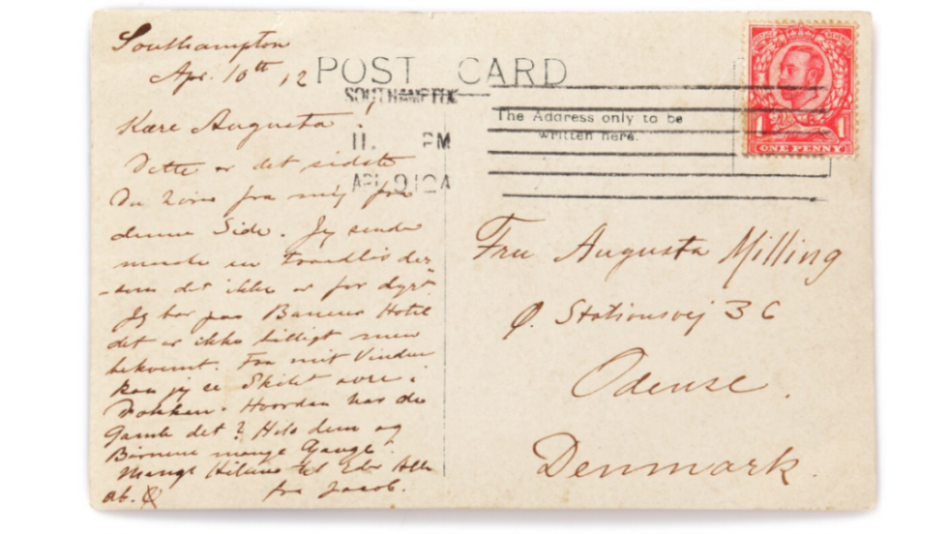 Southampton
Apr. 10th 12
POST CARD
SOUTHAMPTON
Kære Augusta!
11. PM
The Address only to be
written here.
ONE PENNY
1 1
Dette er det sidste
Du hører fra mig fra
denne Side. Jeg sender
maaske en Traadløs der-
som det ikke er for dyrt
Jeg bor paa Hotel
det er ikke billigt men
bekvemt. Fra mit Vindue
kan jeg se Skibet være i
Dokken. Hvordan har de
Gamle det? Hils dem og
Børnene mange Gange.
Mange Hilsner til Eder Alle
fra Jacob.
Fru Augusta Milling
Stationsvej 36
Odense.
Denmark.